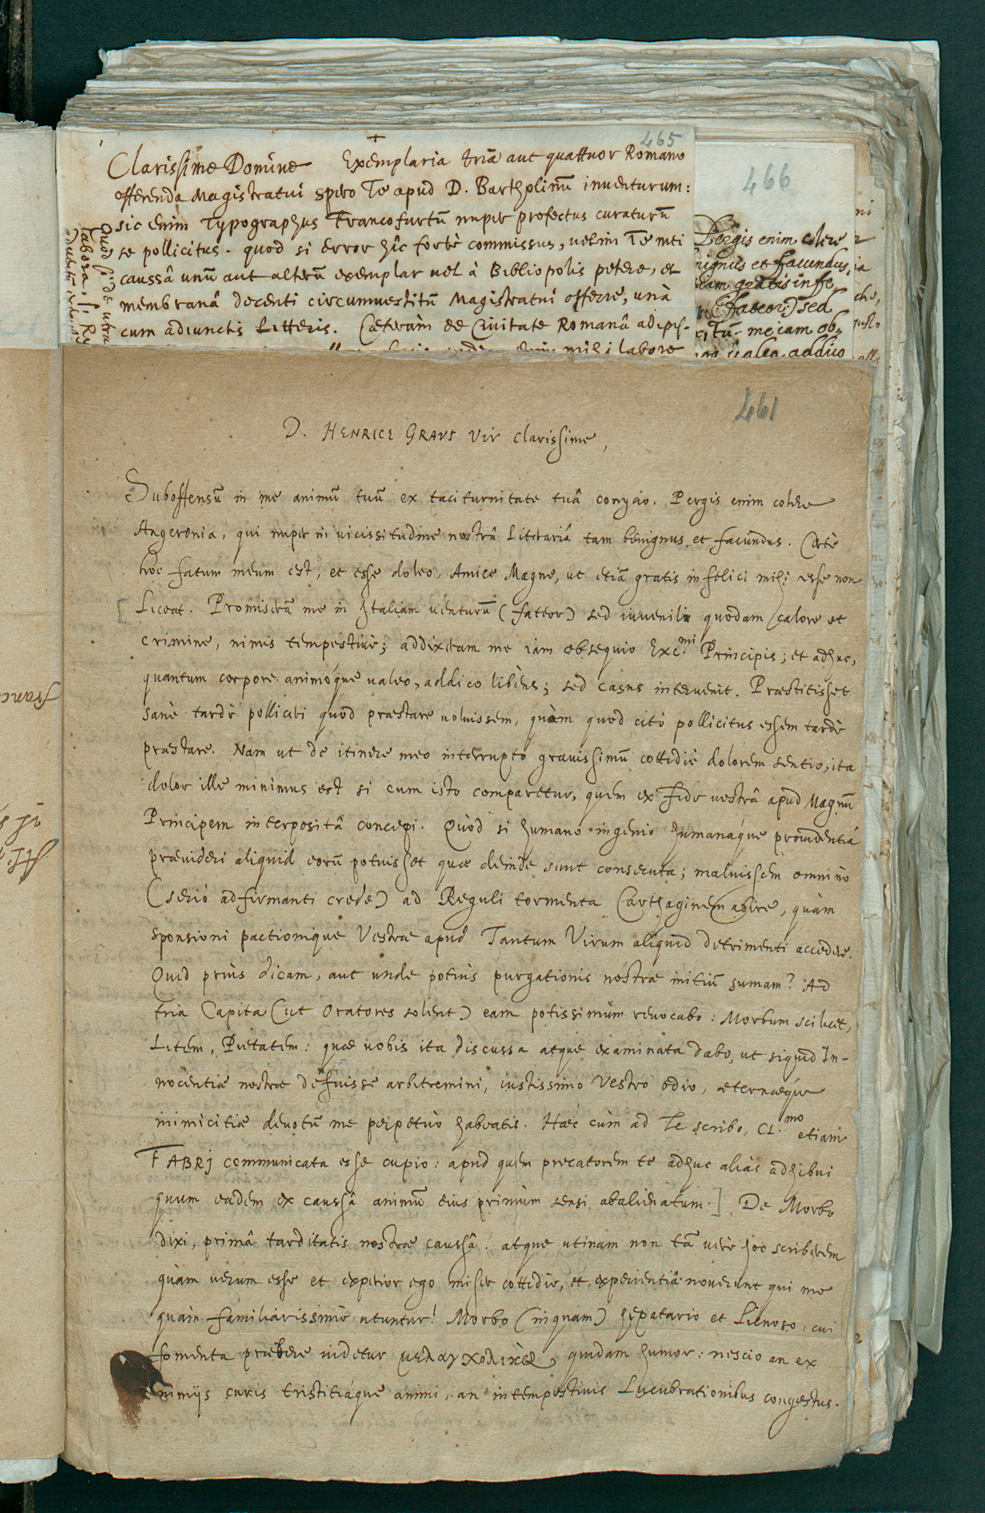 465
Clarissime Domine Exemplaria tria aut quattuor Romano
offerenda Magistratui spero Te apud D. Bartholinũ inventurum:
sic enim Typographus Francofurtũ nuper profectus curaturũ
se pollicitus. quod si error hîc fortè commissus, velim Te mei
caussâ unũ aut alterũ exemplar vel à Bibliopolis petere, et
membranâ decenti circumvestitũ Magistratui offerre, unà
cum adiunctis Litteris. Cæterùm de Civitate Romanâ adipis-
mihi labore
466
Pergis enim colere
nignus et facundus,
gratis infe
(fateor) sed
me iam ob,
valeo, addico
461
D. HENRICE GRAVI Vir Clarissime,
Suboffensũ in me animũ tuũ ex taciturnitate tuâ conijcio. Pergis enim colere
Angeronia, qui nuper in vicissitudine nostrâ Literariâ tam benignus et facundus. Certè
hoc fatum meum est, et esse doleo, Amice Magne, ut etiã gratis infelici mihi esse non
Liceat. Promiserã me in Italiam venturũ (fateor) sed iuvenili quodam calore et
crimine, nimis tempestivè; addixeram me iam obsequio Exc.mi Principis; et adhuc,
quantum corpore animóque valeo, addico libens; sed casus intervenit. Præstitisset
sanè tardè polliceri quod præstare voluissem, quàm quod citò pollicitus essem tardè
præstare. Nam ut de itinere meo interrupto gravissimũ cottidiè dolorem sentio, ita
dolor ille minimus est si cum isto comparetur, quem ex Fide vestrâ apud Magnũ
Principem interpositâ concepi. Quòd si humano ingenio humanáque providentiâ
prævideri aliquid eorũ potuisset quæ deinde sunt consecuta; maluissem omnino
(seriò adfirmanti crede) ad Reguli tormenta Carthaginem abire, quàm
sponsioni pactionique Vestræ apud Tantum Virum aliquid detrimenti accedere.
Quid priùs dicam, aut unde potiùs purgationis nostræ initiũ sumam? Ad
tria Capita (ut Oratores solent) eam potissimùm revocabo: Morbum scilicet,
Litem, Pietatem: quæ vobis ita discussa atque examinata dabo, ut siquid In-
nocentiæ nostræ defuisse arbitremini, iustissimo Vestro odio, æternæque
inimicitiæ devotũ me perpetuò habeatis. Hæc cùm ad Te scribo, Cl.mo etiam
FABRJ communicata esse cupio: apud quem precatorem te adhuc aliàs adhibui
quum eadem ex caussâ animũ eius primùm sensi abalienatum.] De Morbo
dixi, primâ tarditatis nostræ caussâ: atque utinam non tã verè hoc scriberem
quàm verum esse et experior ego miser cottidie, et experientiâ noverunt qui me
quàm familiarissimè utuntur! Morbo (inquam) hypatario et Lienoso: cui
fomenta præbere videtur μελαγχολικὸς quidam humor: nescio an ex
nimijs curis tristitiáque animi, an intempestivis Lucubrationibus congestus.